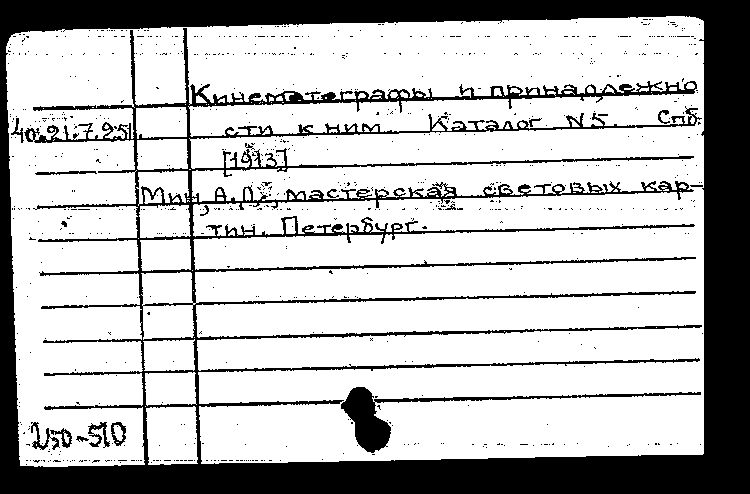 Кинематографы и принадлежно
40.21.7.251. сти к ним. Каталог N5. Спб.
[1913]
Мин, А.Д., мастерская световых кар-
тин. Петербург.
250-510